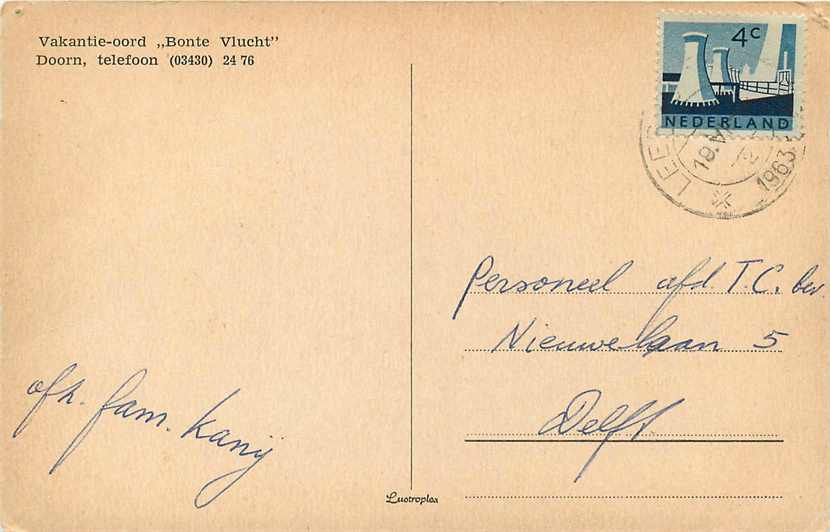 Vakantie-oord „Bonte Vlucht"
Doorn, telefoon (03430) 24 76
4c
NEDERLAND
19.VI
1963
Personeel afd. T.C. bev.
Nieuwelaan 5
Delft
afz. fam. Kanij
Lustroplex